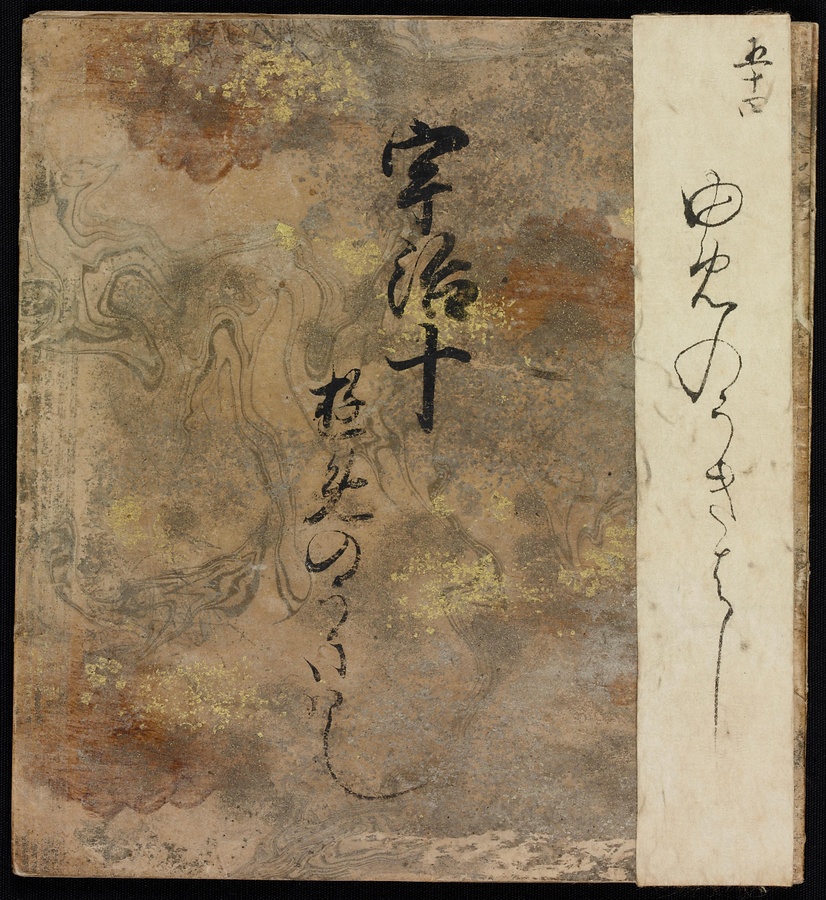 五十四
ゆめのうきはし
宇治十
遊めのうきはし